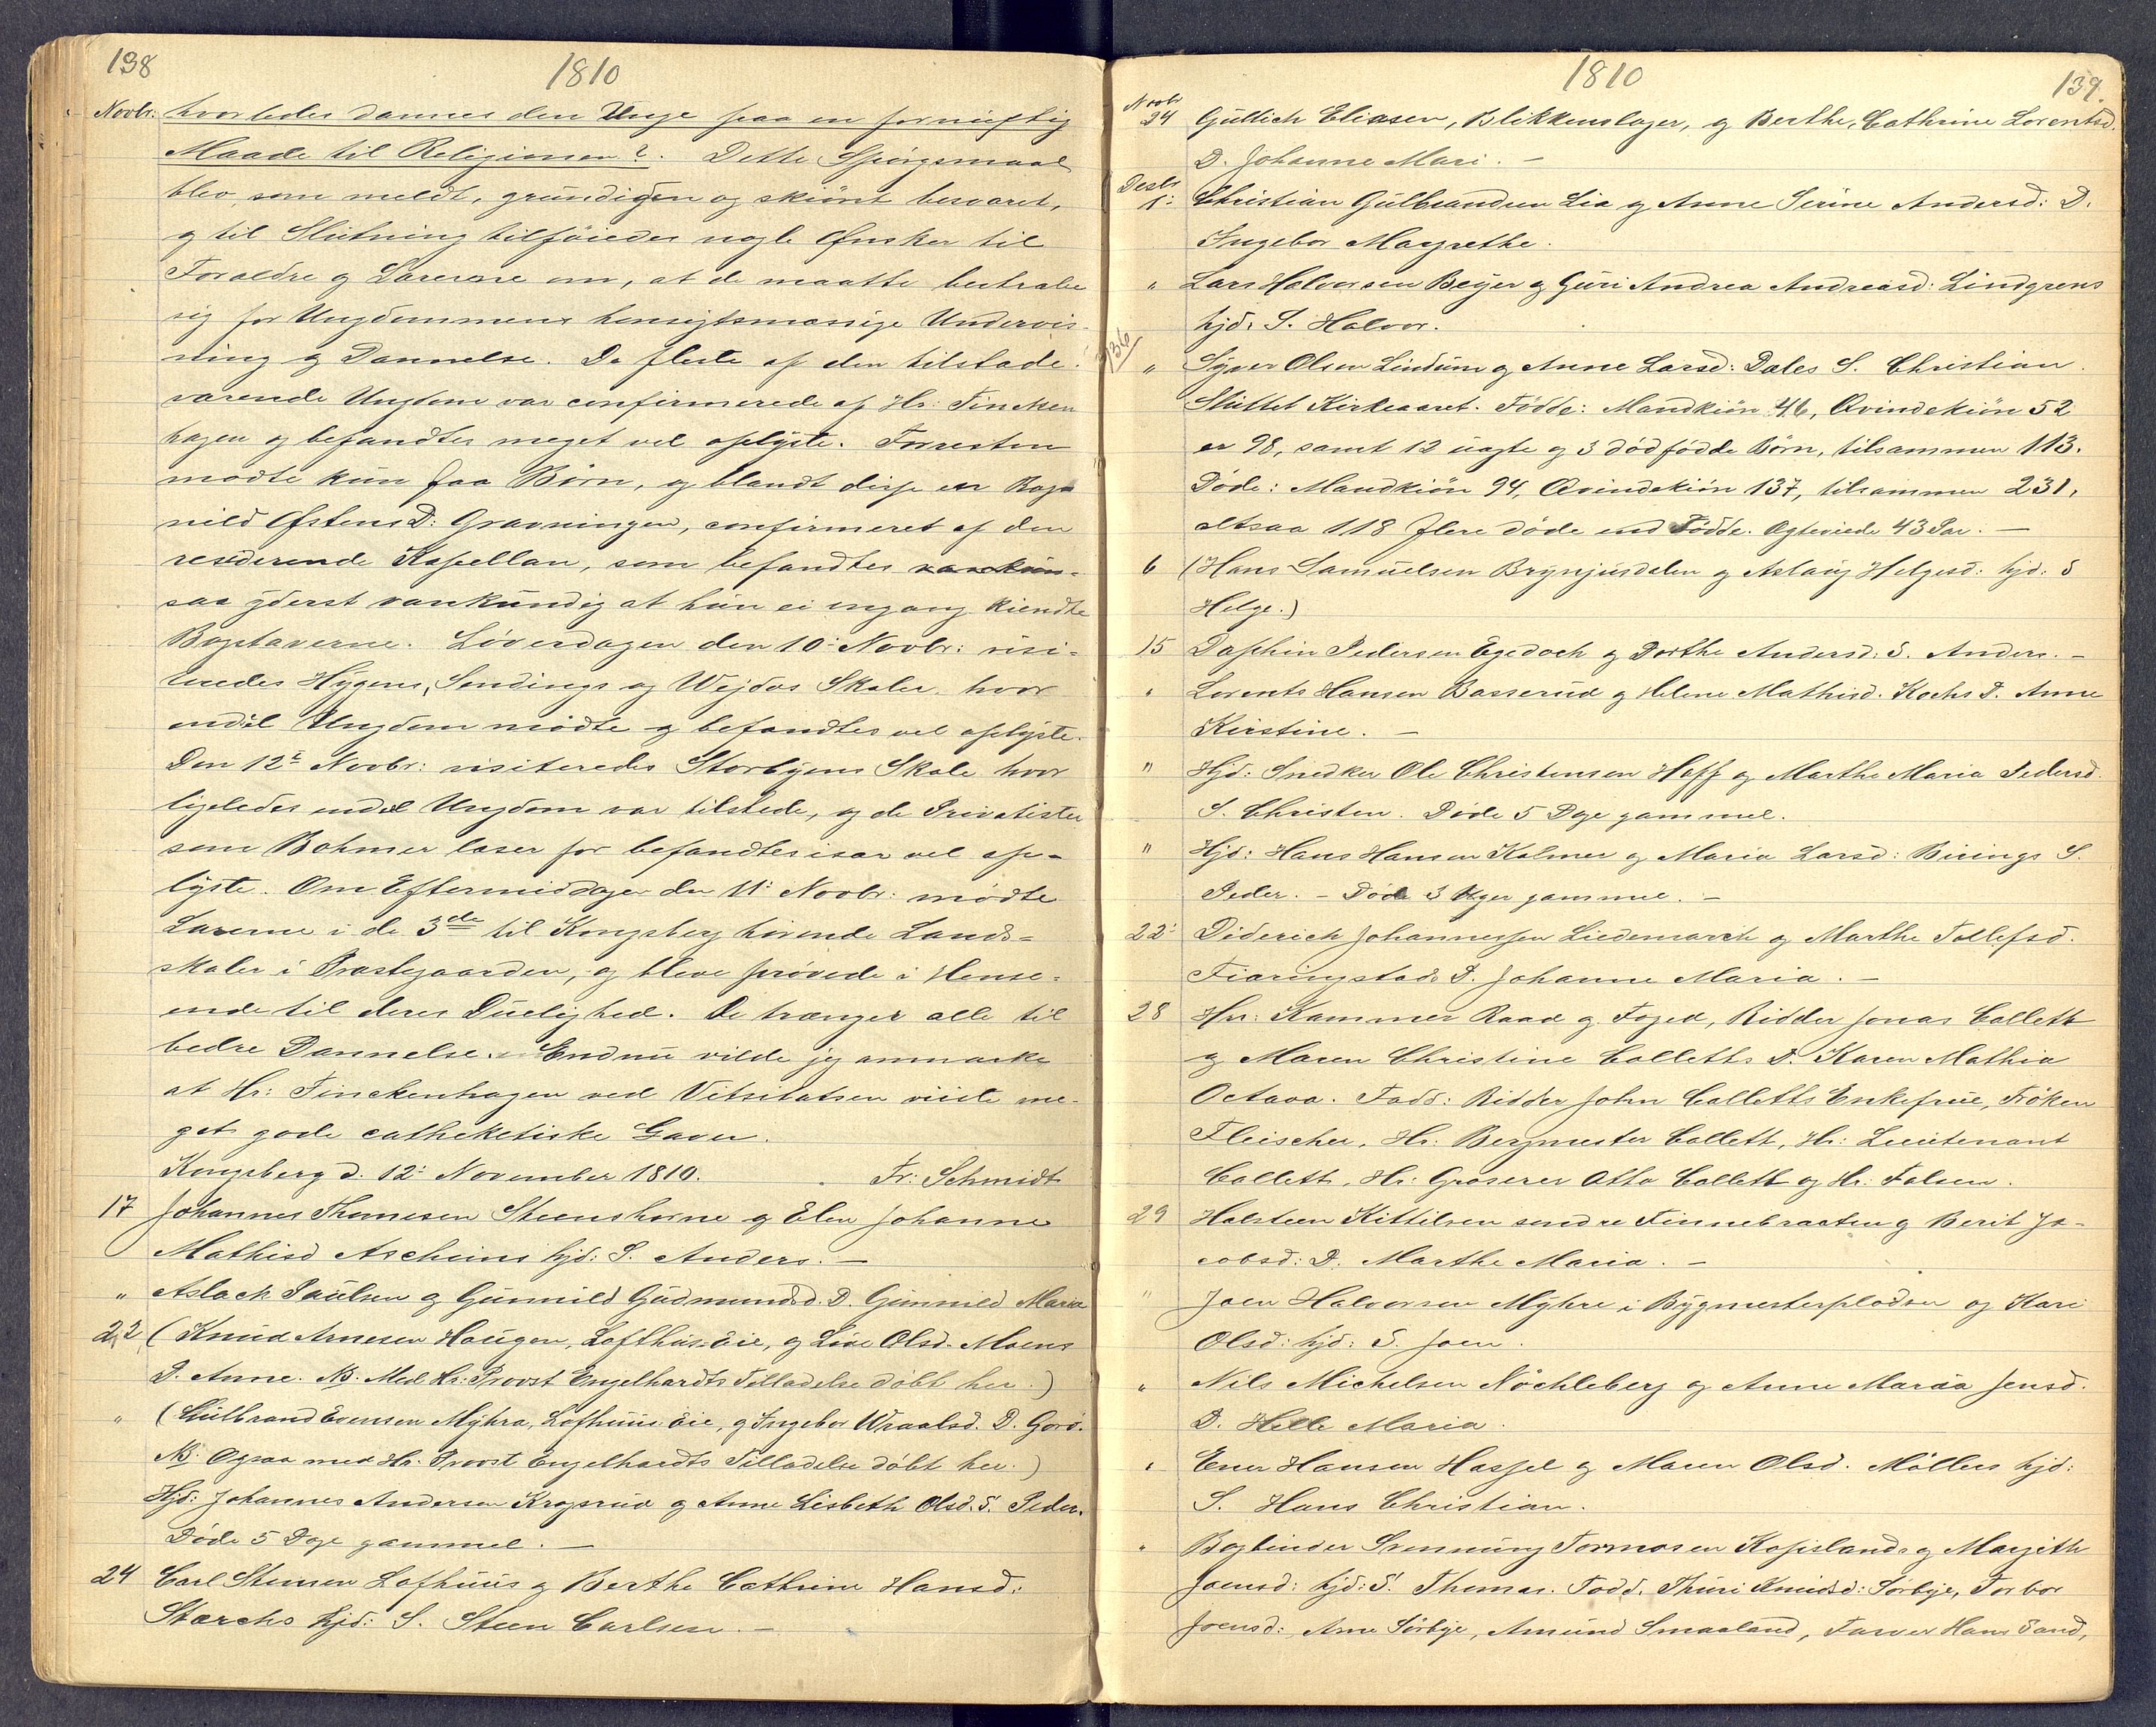 138
1810
Novbr: hvorledes dannes den Unge paa en fornuftig
Maade til Religionen?. Dette Spörgsmaal
blev, som meldt, grundigen og skiönt besvaret,
og til Slutning tilföiedes nogle Ønsker til
Foraeldre og Larerne om, at de maatte bestrabe
sig for Ungdommens hensigtsmassige Undervis-
ning og Dannelse. De fleste af den tilstade-
varende Ungdom var confirmerede af Hr: Fincken
hagen og befandtes meget vel oplyste. Forresten
mødte kun faa Børn, og blandt disse en Ragn
nild Østens D: Gravningen, confirmeret af den
residerende Kapellan, som befandtes
saa yderst vankundig at hun ei engang kiendte
Bogstaverne. Løverdagen den 10: Novbr: visi-
teredes Hygens, Sendings og Wejdas Skoler hvor
endel Ungdom mødte og befandtes vel oplyste.
Den 12te Novbr: visiteredes Storbyens Skole hvor
ligeledes endel Ungdom var tilstede, og de Privatister
som Bohmer laser for befandtes isar vel op-
lyste. Om Eftermiddagen den 11: Novbr: mødte
Larerne i de 3de til Kongsberg hørende Lands-
skoler i Prastegaarden, og bleve prøvede i Hense-
ende til deres Duelighed. De trænger alle til
bedre Dannelse. Endnu vilde jeg anmarke
at Hr: Finckenhagen ved Vitsitatsen viiste me-
get gode catheketiske Gaver.
Kongsberg d. 12: November 1810. Fr: Schmidt
17 Johannes Thomesen Steenshorne og Elen Johanne
Mathisd Ascheims hjd: S. Anders. —
" Aslach Paulsen og Gunnild Gudmundsd. D. Gunnild Maria
22 (Knud Arnesen Haugen, Lofthus Eie, og Live Olsd. Moens
D. Anne. NB. Med Hr: Provst Engelhardts Tilladelse döbt her.)
" (Gulbrand Evensen Myhra, Lofhuus Eie, og Ingebor Wraalsd. D. Gorö.
NB. Ogsaa med Hr. Provst Engelhardts Tilladelse döbt her.)
Hjd: Johannes Andersen Kragsrud og Anne Lisbeth Olsd. S. Peder.
Døde 5 Dage gammel. —
24 Carl Steensen Lofhuus og Berthe Cathrine Hansd:
Starchs hjd: S. Steen Carlsen. —
1810
139.
Novbr
24 Gullich Eliasen, Blikkenslager, og Berthe Cathrine Lorentsd.
D. Johanne Mari. —
Desbr
1: Christian Gulbrandsen Lia og Anne Serine Andersd: D.
Ingebor Magrethe.
" Lars Halvorsen Beyer og Guri Andrea Andreasd: Lindgrens
hjd. S. Halvor.
136
" Syver Olsen Lindum og Anne Larsd: Dales S. Christian.
Sluttet Kirkeaaret. Födde: Mandkiön 46, Qvindekiön 52
er 98, samt 12 uagte og 3 dödfödde Börn, tilsammen 113.
Döde: Mandkiön 94, Qvindekiön 137, tilsammen 231,
altsaa 118 flere döde end Födde. Ægteviede 43 Par. —
6 (Hans Samuelsen Brynjusdalen og Aslaug Helgesd: hjd: S
Helge.)
15 Dasshin Pedersen Egedoch og Dorthe Andersd: S. Anders. —
" Lorents Hansen Basserud og Helene Mathisd. Kochs D. Anne
Kirstine. —
" Hjd: Snedker Ole Christensen Hoff og Marthe Maria Pedersd.
S. Christen. Døde 5 Dage gammel.
" Hjd: Hans Hansen Kalmer og Maria Larsd: Birings S.
Peder. — Døde 3 Uger gammel. —
22: Diderich Johannessen Liedemarch og Marthe Tollefsd.
Fiaringstads D. Johanne Maria. —
28 Hr: Kammer Raad og Foged, Ridder Jonas Collett
og Maren Christine Colletts D. Karen Mathia
Octava. Fadd: Ridder John Colletts Enkefrue, Fröken
Fleischer, Hr: Bergmester Collett, Hr: Lieutenant
Collett, Hr: Groserer Otto Collett og Hr. Falsen.
29 Halsteen Kittilsen sendre Finnebraaten og Berit Ja-
cobsd: D. Marthe Maria. —
" Joen Halvorsen Myhre i Bygmesterpladsen og Kari
Olsd: hjd: S. Joen.
" Nils Michelsen Nöchleberg og Anne Maria Jensd.
D. Helle Maria.
" Ener Hansen Hassel og Maren Olsd. Möllers hjd:
S. Hans Christian.
" Bogbinder Svennung Tormosen Kopsland og Margith
Joensd: hjd: S. Thomas. Fadd. Thuri Knudsd: Sörbye, Torbor
Joensd: Arne Sörbye, Amund Smaaland, Farver Hans Sand,